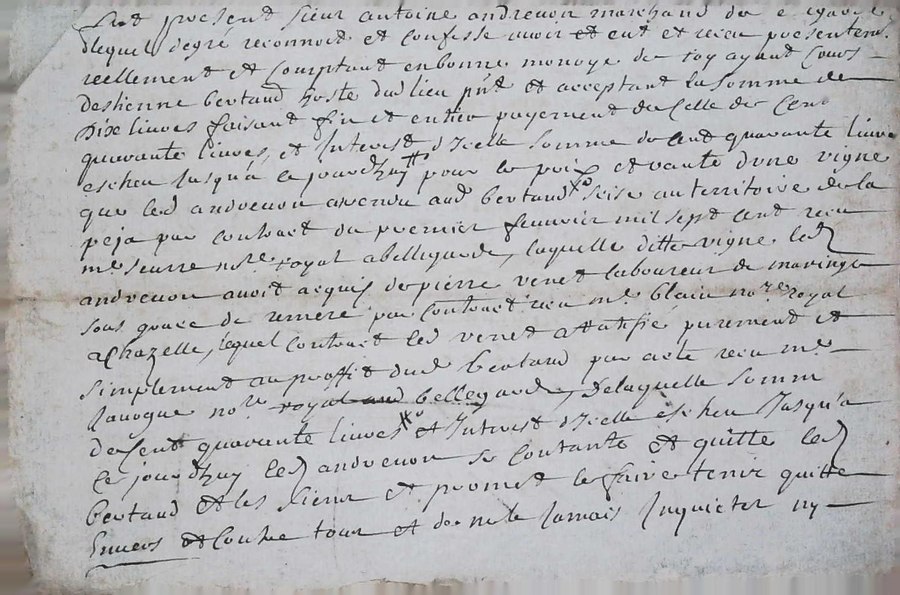 fut present sieur antoine andrevon marchand de
lequel degré reconnoit et confesse avoir et eut et receu presentem.
reellement et comptant en bonne monoye de roy ayant cours
destienne bertaud hoste dud lieu pnt et acceptant la somme de
dix livres faisant fin et entier payement de celle de cent
quarante livres, et Interest d'Icelle somme de cent quarante livres
escheu Jusqu'a ce jourdhuy pour le prix et vante d'une vigne
que led andrevon a vendu aud bertaud sise au territoire de la
peja par contract du premier fevrier mil sept cent receu
me seurre nore. royal a bellegarde, laquelle ditte vigne led
andrevon avoit acquis de pierre venet laboureur de maringe
sous grace de remere par contract receu me. blain nore. royal
a Chazelle, lequel contract led venet a ratifié purement et
simplement au proffit dud bertaud par acte receu me.
nore. royal aud bellegarde, de laquelle somm
de cent quarante livres et Interest d'Icelle escheu Jusqu'a
ce jourdhuy led andrevon se contante et quitte led
bertaud et les siens et promet le faire tenir quitte
Envers et Contre tous et de ne le Jamais Inquieter ny